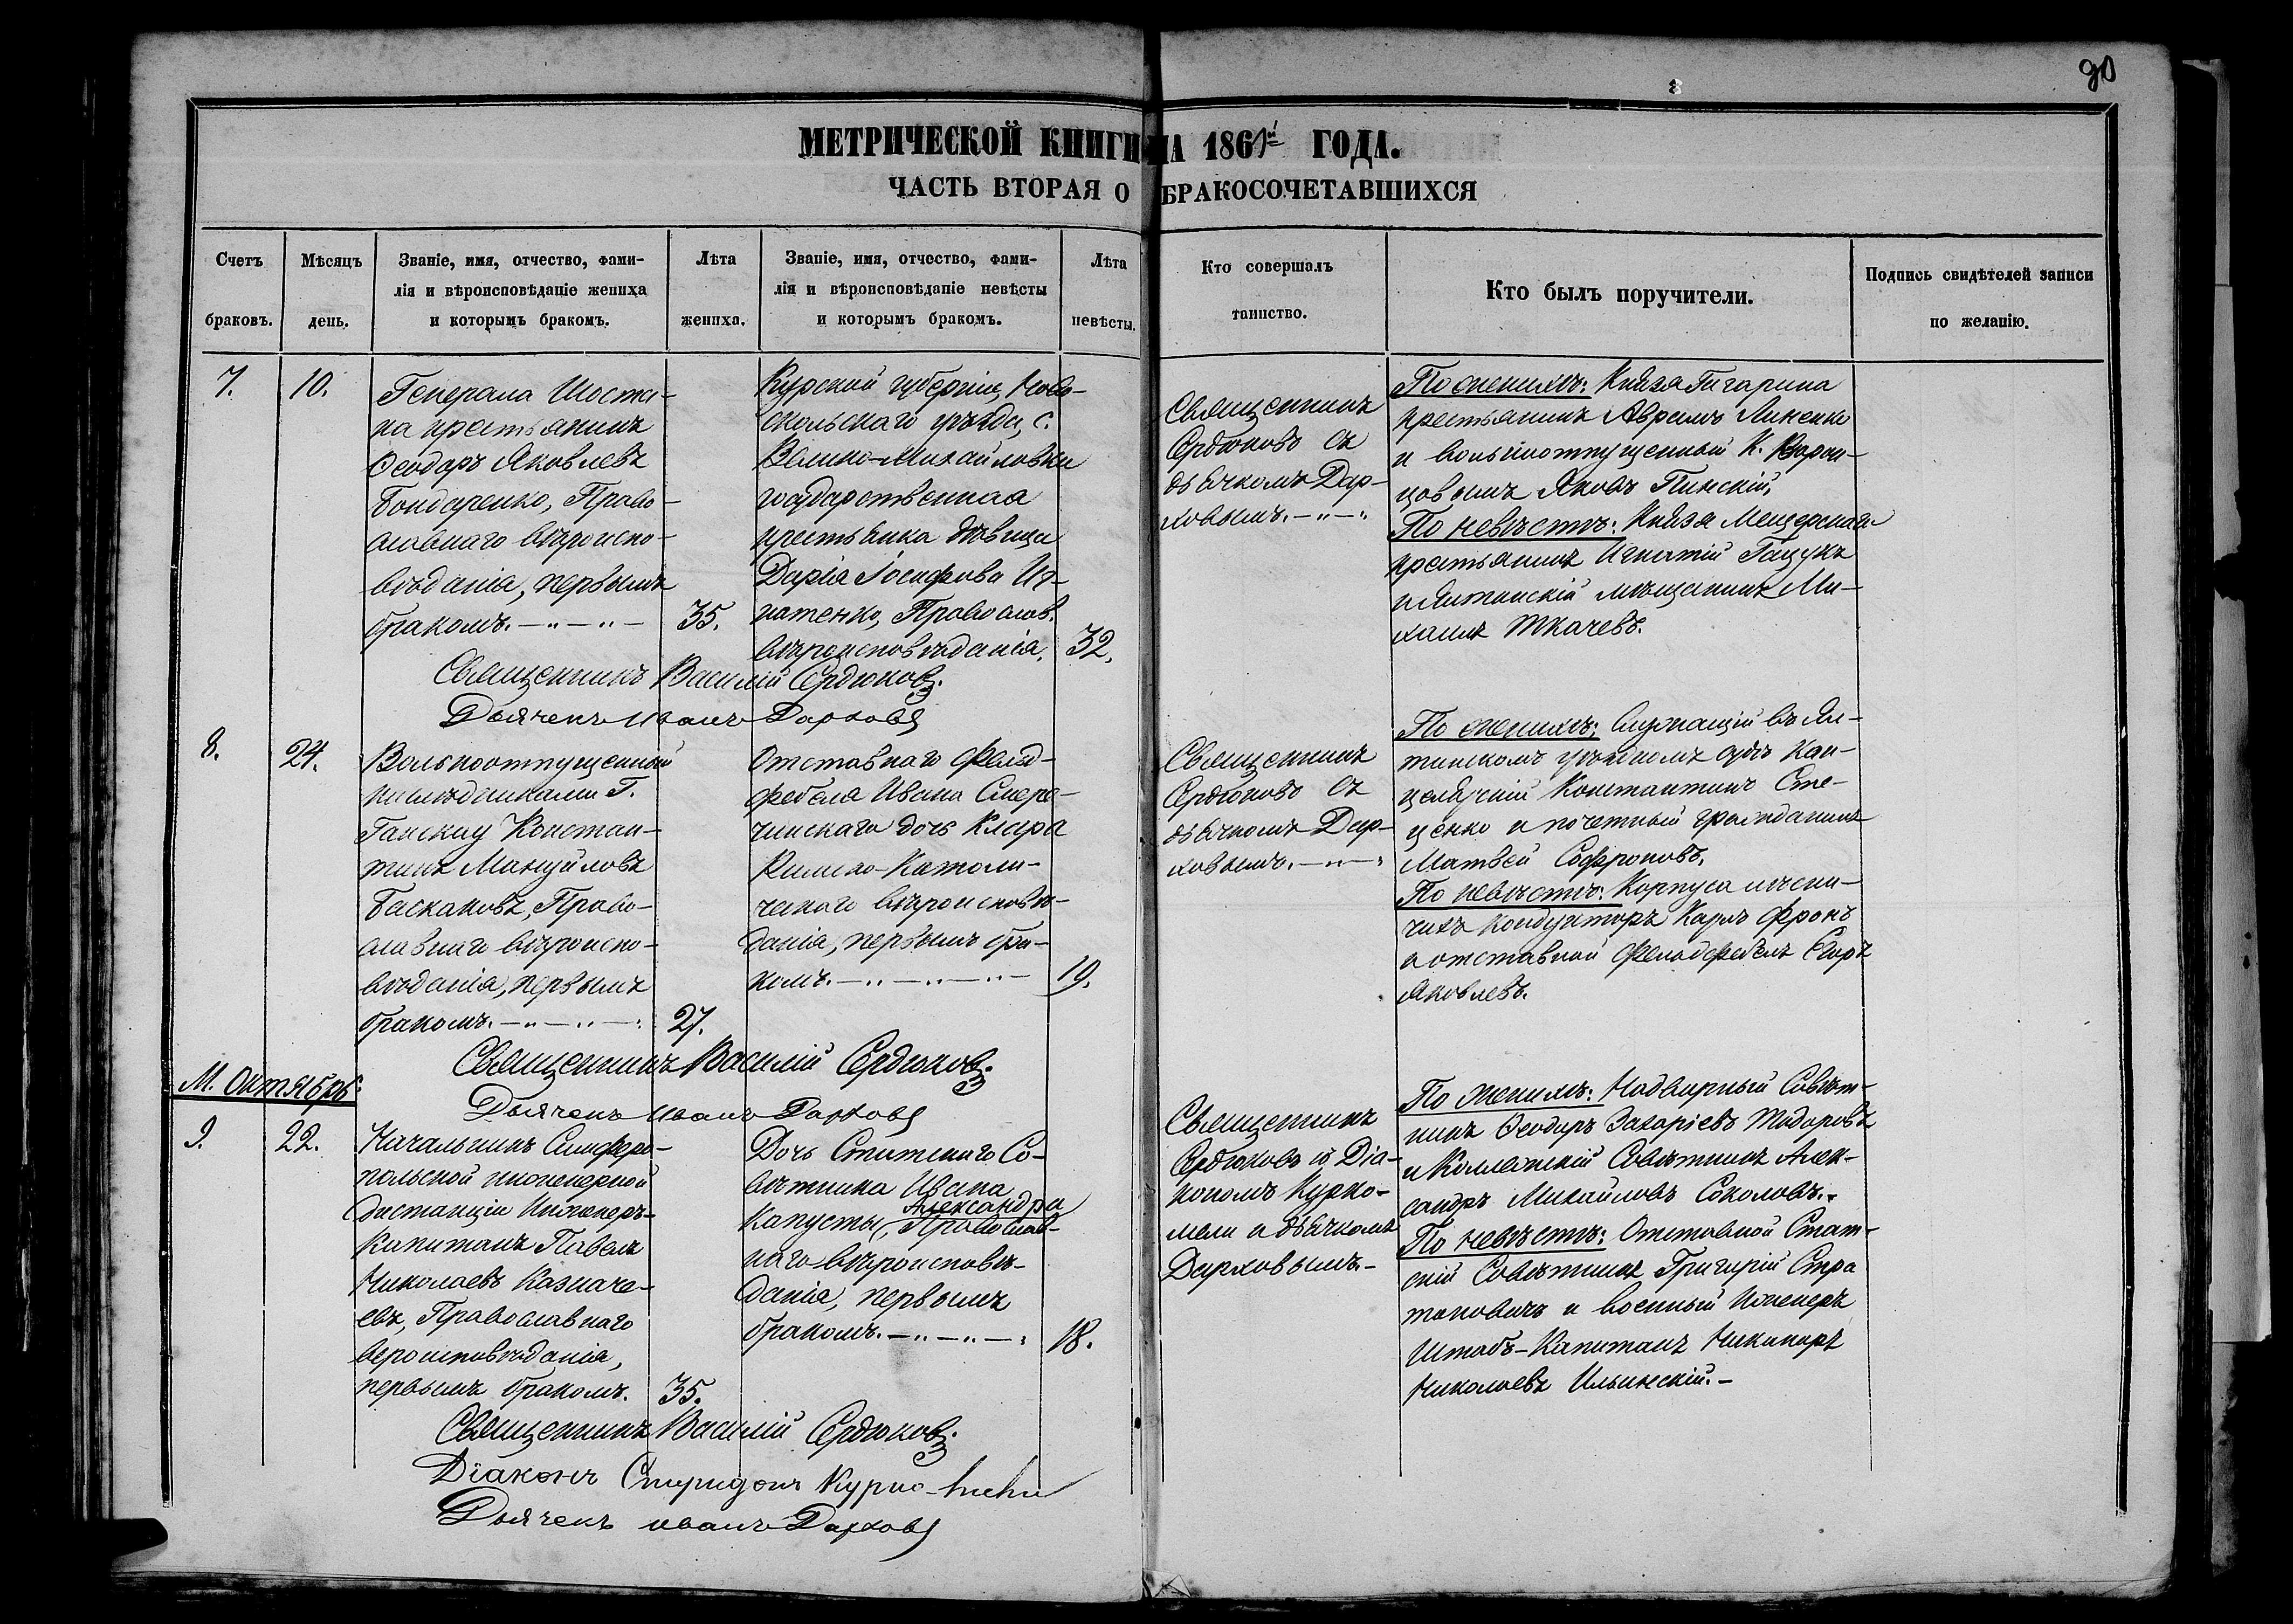 90
МЕТРИЧЕСКОЙ КНИГИ НА 1861й ГОДА.
ЧАСТЬ ВТОРАЯ О БРАКОСОЧЕТАВШИХСЯ
Счетъ браковъ.
Мѣсяцъ день.
Званіе, имя, отчество, фами-
лія и вѣроисповѣданіе жениха
и которымъ бракомъ.
Лѣта жениха.
Званіе, имя, отчество, фами-
лія и вѣроисповѣданіе невѣсты
и которымъ бракомъ.
Лѣта невѣсты.
Кто совершалъ
таинство.
Кто былъ поручители.
Подпись свидѣтелей записи
по желанію.
7.
10.
Генерала Шоста-
ка крестьянинъ
Ѳеодоръ Яковлевъ
Бондаренко, Право-
славнаго вѣроиспо-
вѣданія, первымъ
бракомъ.
35.
Курской губерніи, Ново-
скольскаго уѣзда, с.
Велико-Михайловки
государственная
крестьянка дѣвица
Дарія Іосифова Иг-
натенко, Православ.
вѣроисповѣданія.
32.
Священникъ
Сердюковъ съ
дьячкомъ Дар-
ховымъ.
По женихѣ: Князя Гагарина
крестьянинъ Аврамъ Линенко
и вольноотпущенный К. Ворон-
цовымъ Яковъ Пинскій,
По невѣстѣ: Князя Мещерскаго
крестьянинъ Игнатій Гацукъ
и Ялтинскій мѣщанинъ Ми-
хаилъ Ткачевъ.
Священникъ Василій Сердюковъ.
Дьячекъ Иванъ Дарховъ
8.
24.
Вольноотпущенный
наслѣдниками Г.
Ганскау Констан-
тинъ Мануйловъ
Баскаковъ, Право-
славнаго вѣроиспо-
вѣданія, первымъ
бракомъ.
27.
Отставнаго Фельд-
фебеля Ивана Смере-
чинскаго дочь Клара
Римско-Католи-
ческаго вѣроисповѣ-
данія, первымъ бра-
комъ.
19.
Священникъ
Сердюковъ съ
дьячкомъ Дар-
ховымъ.
По женихѣ: Служащій въ Ял-
тинскомъ уѣздномъ судѣ Кан-
целярскій Константинъ Сте-
ценко и почетный гражданинъ
Матвей Софроновъ.
По невѣстѣ: Корпуса лѣсни-
чихъ Кондукторъ Карлъ Фронъ
и отставной Фельдфебель Егоръ
Яковлевъ.
Священникъ Василій Сердюковъ.
Дьячекъ Иванъ Дарховъ
М. Октябрь:
9.
22.
Начальникъ Симферо-
польской инженерной
дистанціи Инженеръ-
Капитанъ Павелъ
Николаевъ Казначе-
евъ, Православнаго
вероисповѣданія,
первымъ бракомъ.
35.
Дочь Статскаго Со-
вѣтника Ивана
Александра
Капусты, Православ-
наго вѣроисповѣ-
данія, первымъ
бракомъ.
18.
Священникъ
Сердюковъ съ Діа-
кономъ Курко-
мели и дьячкомъ
Дарховымъ.
По женихѣ: Надворный Совѣт-
никъ Ѳеодоръ Захаріевъ Тодоровъ
и Коллежскій Совѣтникъ Алек-
сандръ Михайловъ Соколовъ.
По невѣстѣ: Отставной Стат-
скій Совѣтникъ Григорій Стра
тановичъ и военный Инженеръ
Штабъ-Капитанъ Никаноръ
Николаевъ Ильинскій.
Священникъ Василій Сердюковъ.
Діаконъ Спиридонъ Курко-мели
Дьячекъ Иванъ Дарховъ